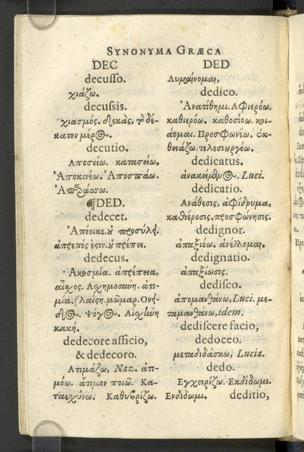 SYNONYMA GRÆCA
DEC
decusso.
χιάζω.
decussis.
χιασμός. δεκὰς,
κατον
decutio.
Αποσείω. κατασείω,
Αποκινέω. Αποσπάω.
DED.
dedecet.
Απέοικε.
dedecus.
Ακοσμία. ἀπρέπεια,
αἶσχος. Αχημοσύνη. ἀτι-
μία.
κακή.
dedecore afficio,
& dedecoro.
Ατιμάζω, Naz. ἀτι-
μόω. ἄτιμον ποιῶ. Κα-
ταισχύνω. Καθυβρίζω.
DED
Λυμαίνομαι,
dedico.
Ανατίθημι. Αφιερόω.
καθιερόω. καθοσιόω.
Προσφωνέω.
θειάζω. τελεσιουργέω.
dedicatus.
Luci.
dedicatio.
Ανάθεσις. ἀφίδρυμα,
καθιέροσις. προσφώνησις.
dedignor.
ἀπαξιόω.
dedignatio.
ἀπαξίωσις.
dedisco.
ἀπομανθάνω, Luci. με-
ταμανθάνω, idem.
dediscere facio,
dedoceo.
μεταδιδάσκω, Lucia.
dedo.
Εγχειρίζω. Εκδίδωμι.
Ενδίδωμι.
deditio,